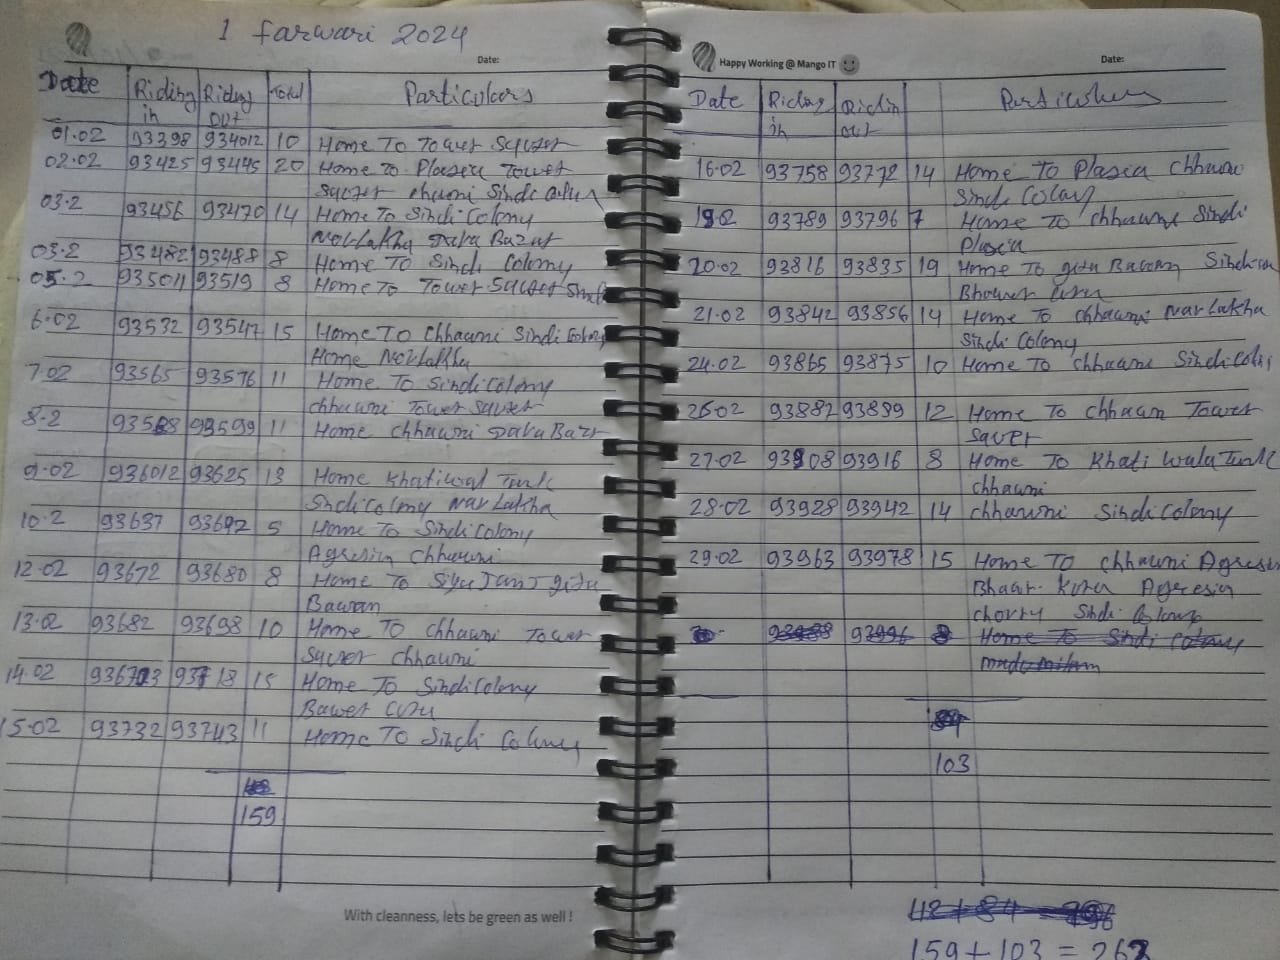 1 farwari 2024
Date:
Date Riding in Riding out Total Particulars
01.02 93398 934012 10 Home To Tower Squzer
02.02 93425 93445 20 Home To Plasia Tower
Sindi
03.2 93456 93470 14 Home To Sindi Colony
Bazar
03.2 93482 93488 8 Home To Sindi Colony
05.2 935011 93519 8 Home To Tower Squzer
6.02 93532 93547 15 Home TO Chhawni Sindi Colony
Home Norlakha
7.02 93565 93576 11 Home To Sindi Colony
chhawni Tower Squzer
8.2 93588 93599 11 Home chhawni
9.02 936012 93625 13 Home Khatiwal Tank
Sindi Colony Navlakha
10.2 93637 93692 5 Home To Sindi Colony
Agresin Chhawni
12.02 93672 93680 8 Home To
Bawan
13.02 93682 93698 10 Home To Chhawni Tower
Squzer Chhawni
14.02 936703 93718 15 Home To Sindi Colony
15.02 93732 93743 11 Home TO Sindi Colony
159
With cleanness, lets be green as well !
Happy Working @ Mango IT
Date:
Date Riding in Riding out
16.02 93758 93772 14 Home To Plasia Chhawni
Sindi Colony
93789 93796 7 Home To Chhawni Sindi
Plasia
20.02 93816 93835 19 Home To
21.02 93842 93856 14 Home To chhawni Navlakha
Sindi Colony
24.02 93865 93875 10 Home To chhawni Sindi
26.02 93887 93899 12 Home To Chhawn Tower
27.02 93908 93916 8 Home To Khati Wala Tank
chhawni
28.02 93928 93942 14 chhawni Sindi Colony
29.02 93963 93978 15 Home To chhawni Agresin
Agresin
Sindi Colony
Home To Sindi Colony
103
159 + 103 = 262